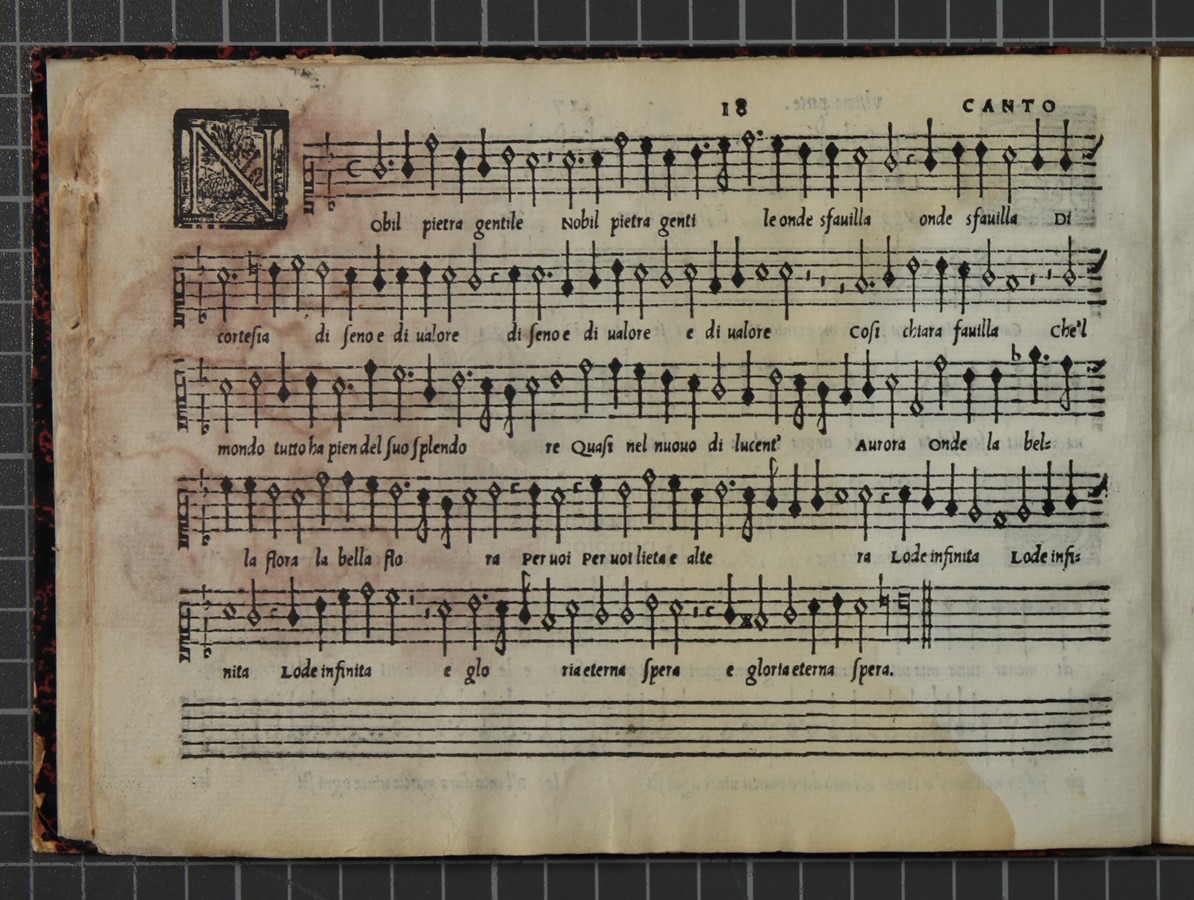 18 CANTO
NObil pietra gentile Nobil pietra genti le onde sfauilla onde sfauilla Di
cortesia di seno e di ualore di seno e di ualore e di ualore Cosi chiara fauilla Che'l
mondo tutto ha pien del suo splendo re Quasi nel nuouo di lucent' Aurora Onde la bel=
la flora la bella flo ra Per uoi Per uoi lieta e alte ra Lode infinita Lode infi=
nita Lode infinita e glo ria eterna spera e gloria eterna spera.